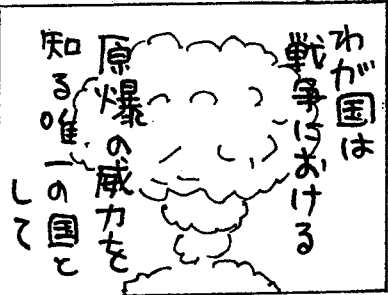 わが国は
戦争における
原爆の威力を
知る唯一の国と
して